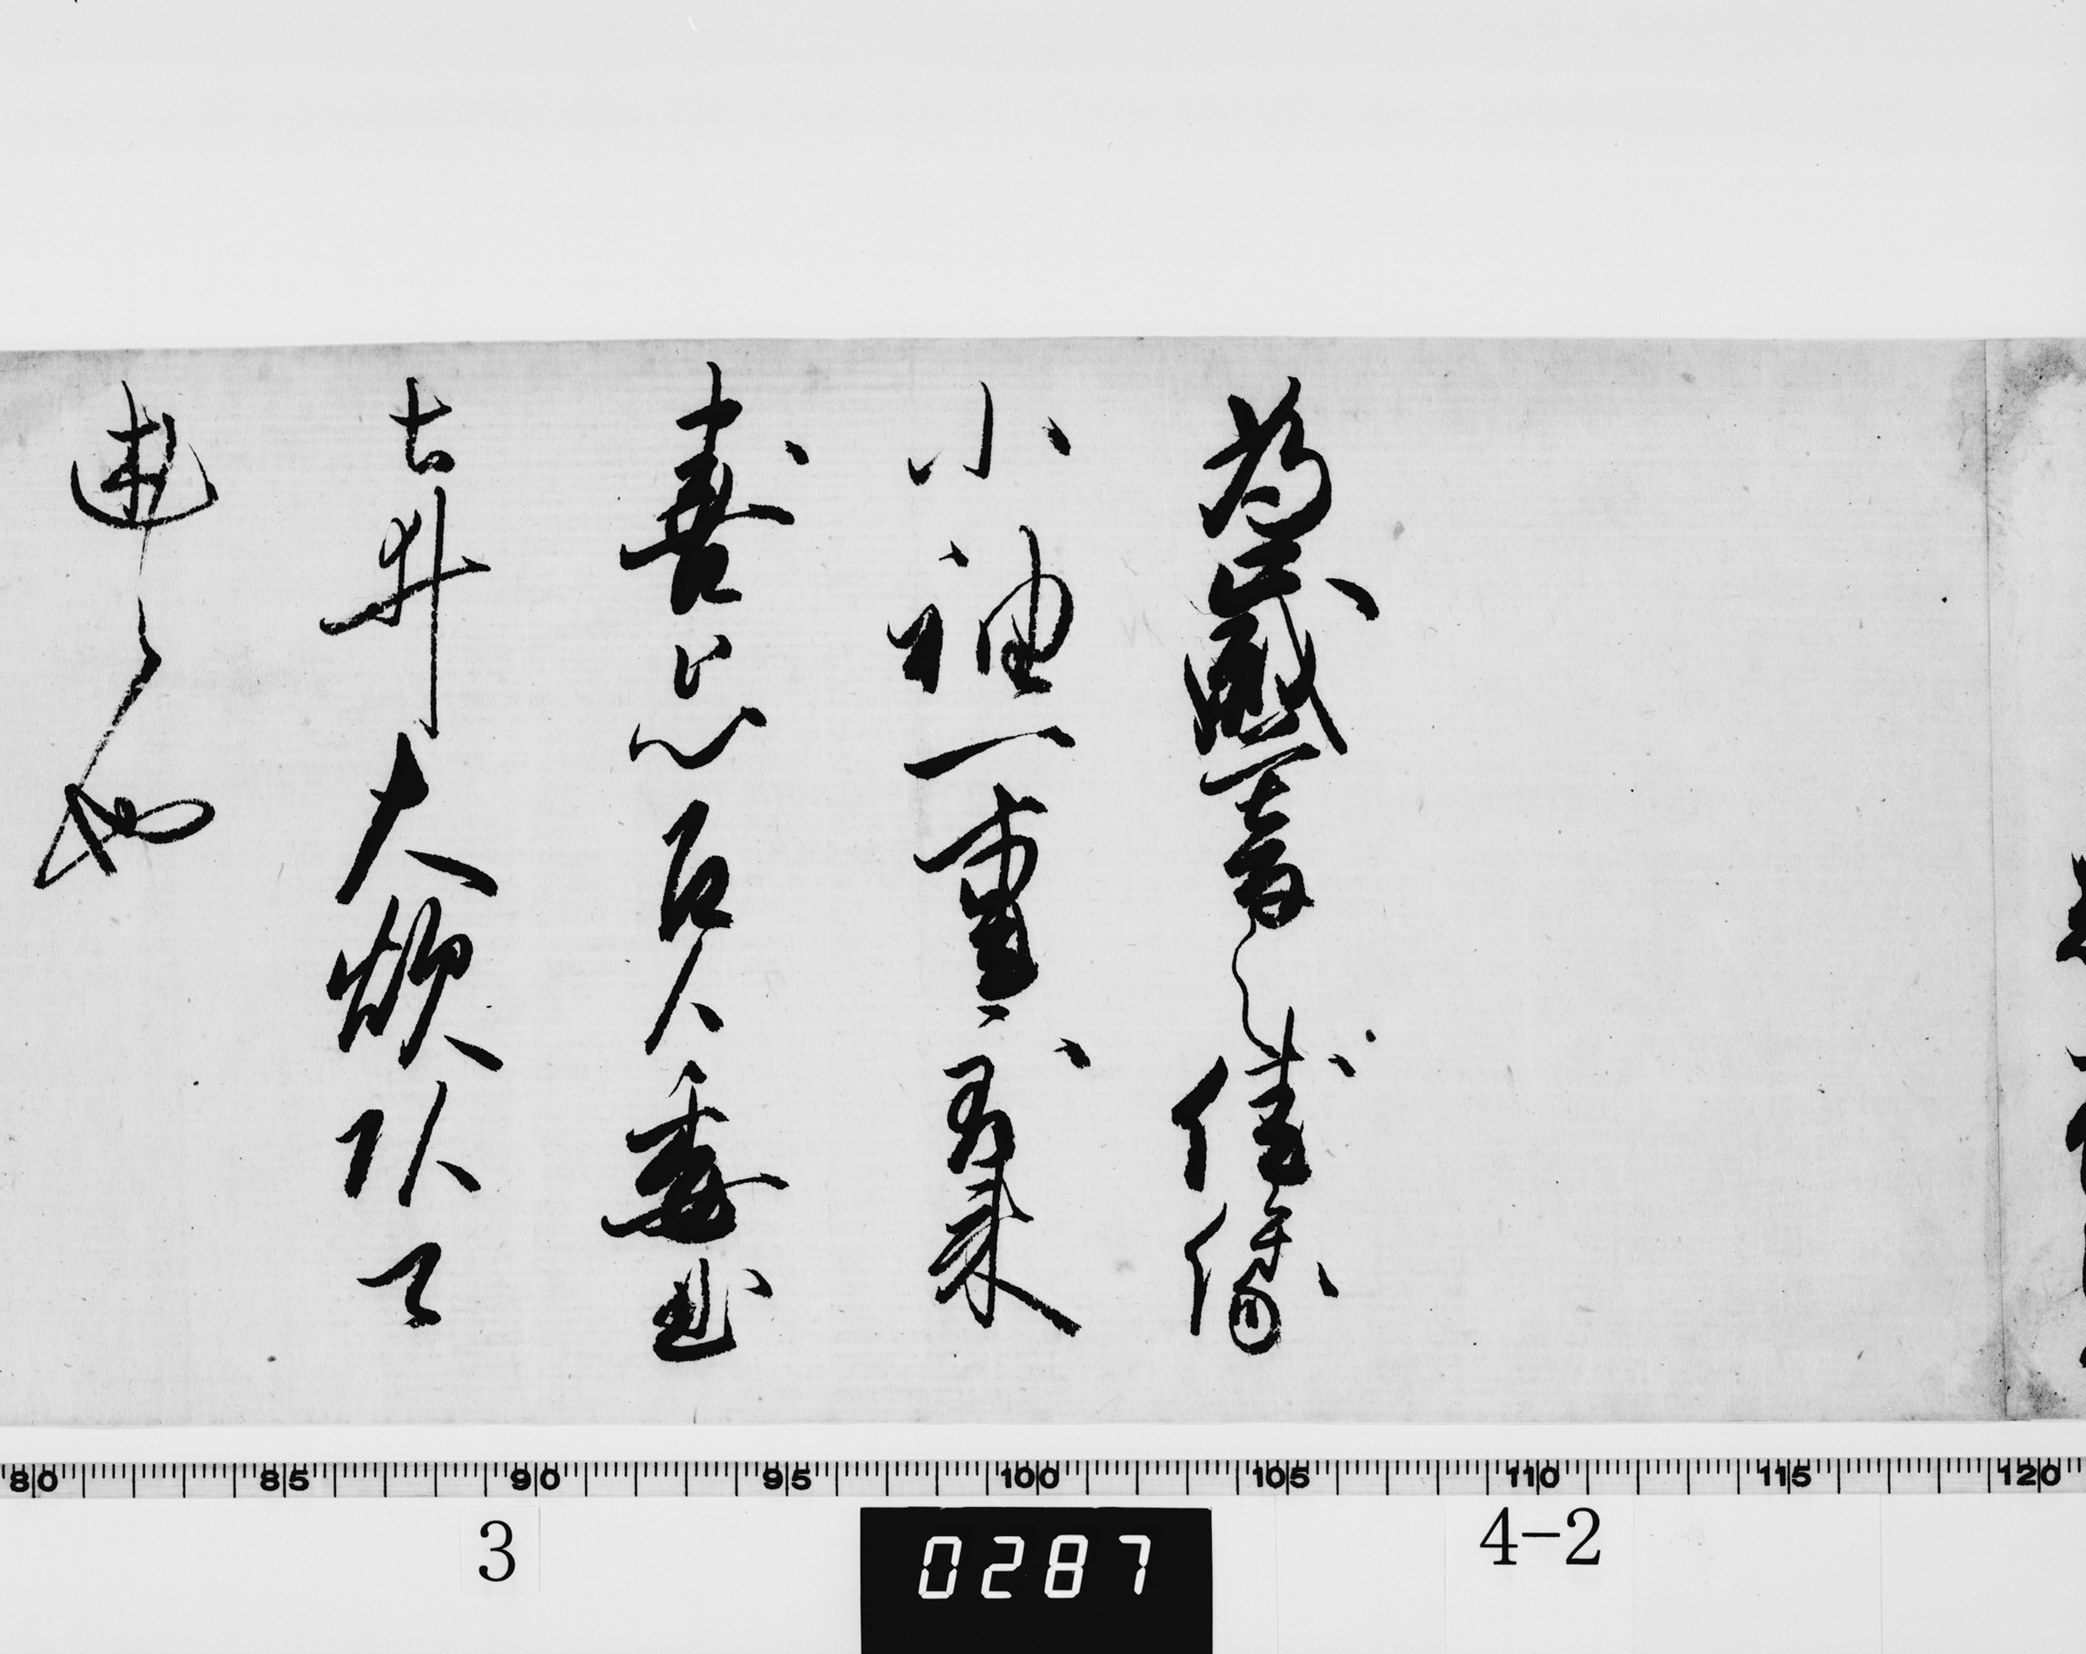 為歳暮之佳儀
小袖一重到来
喜思召候委曲
土井大炊頭可
述候也
80 85 90 95 100 105 110 115 120
3
0287
4-2